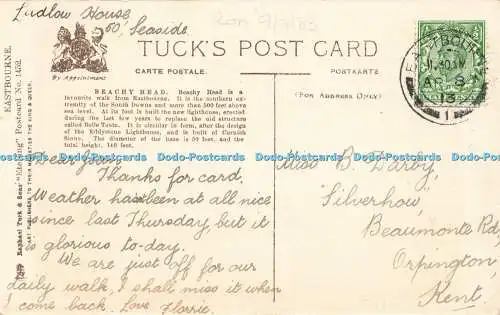 Ludlow House
60, Seaside
TUCK'S POST CARD
CARTE POSTALE.
POSTKARTE
By Appointment
(FOR ADDRESS ONLY)
BEACHY HEAD. Beachy Head is a
favourite walk from Eastbourne. It is the northern ex-
tremity of the South Downs and more than 500 feet above
the sea. At its foot is built the new lighthouse,
erected during the last few years to replace the old structure
called Belle Toute. It is circular in form, after the design
of the Eddystone Lighthouse, and is built of Cornish
Stone. The diameter of the base is 50 feet, and the
total height, 140 feet.
EASTBOURNE.
Postcard No. 1452.
Raphael Tuck & Sons'
ART PUBLISHERS TO THEIR MAJESTIES THE KING & QUEEN.
EASTBOURNE
13
1
Dear
Thanks for card.
Weather hasn't been at all nice
since last Thursday but it
is glorious to-day.
We are just off for our
daily walk, I shall miss it when
I come back. Love Florrie.
Miss B. Darby,
"Silverhow,"
Beaumonte Rd
Orpington
Kent.
Dodo-Postcards Dodo-Postcards Dodo-Postcards Dodo-Postcards Dodo-Postcards Dodo-Postcards